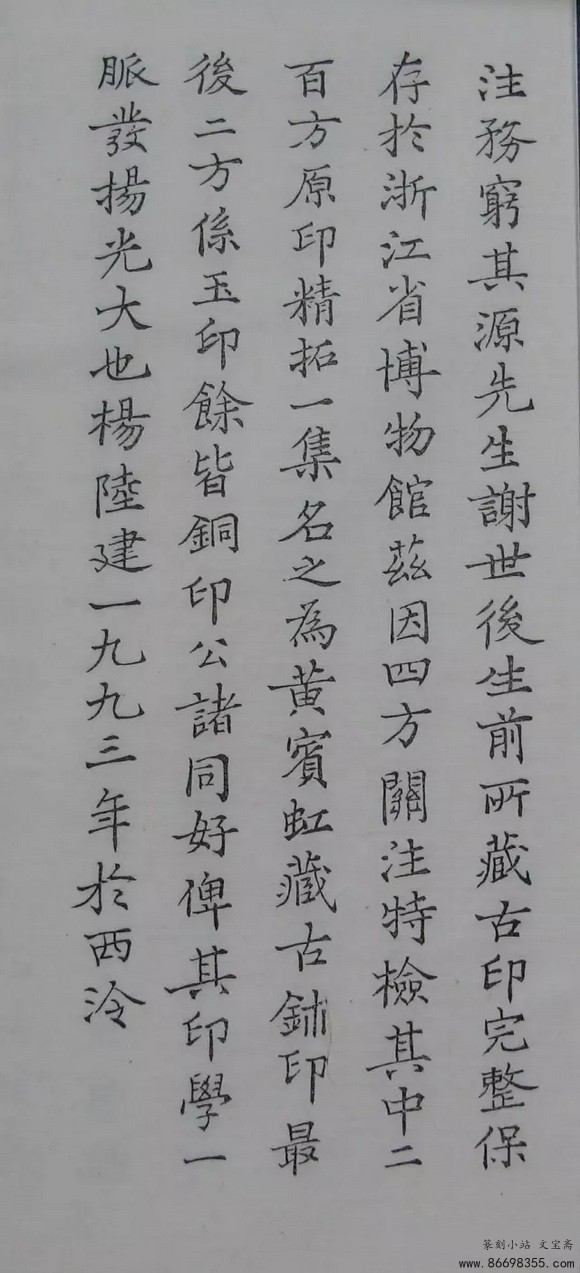 注務窮其源先生謝世後生前所藏古印完整保
存於浙江省博物館茲因四方關注特檢其中二
百方原印精拓一集名之為黃賓虹藏古鉥印最
後二方係玉印餘皆銅印公諸同好俾其印學一
脈發揚光大也楊陸建一九九三年於西泠
篆刻小站 文宝斋
www.86698355.com